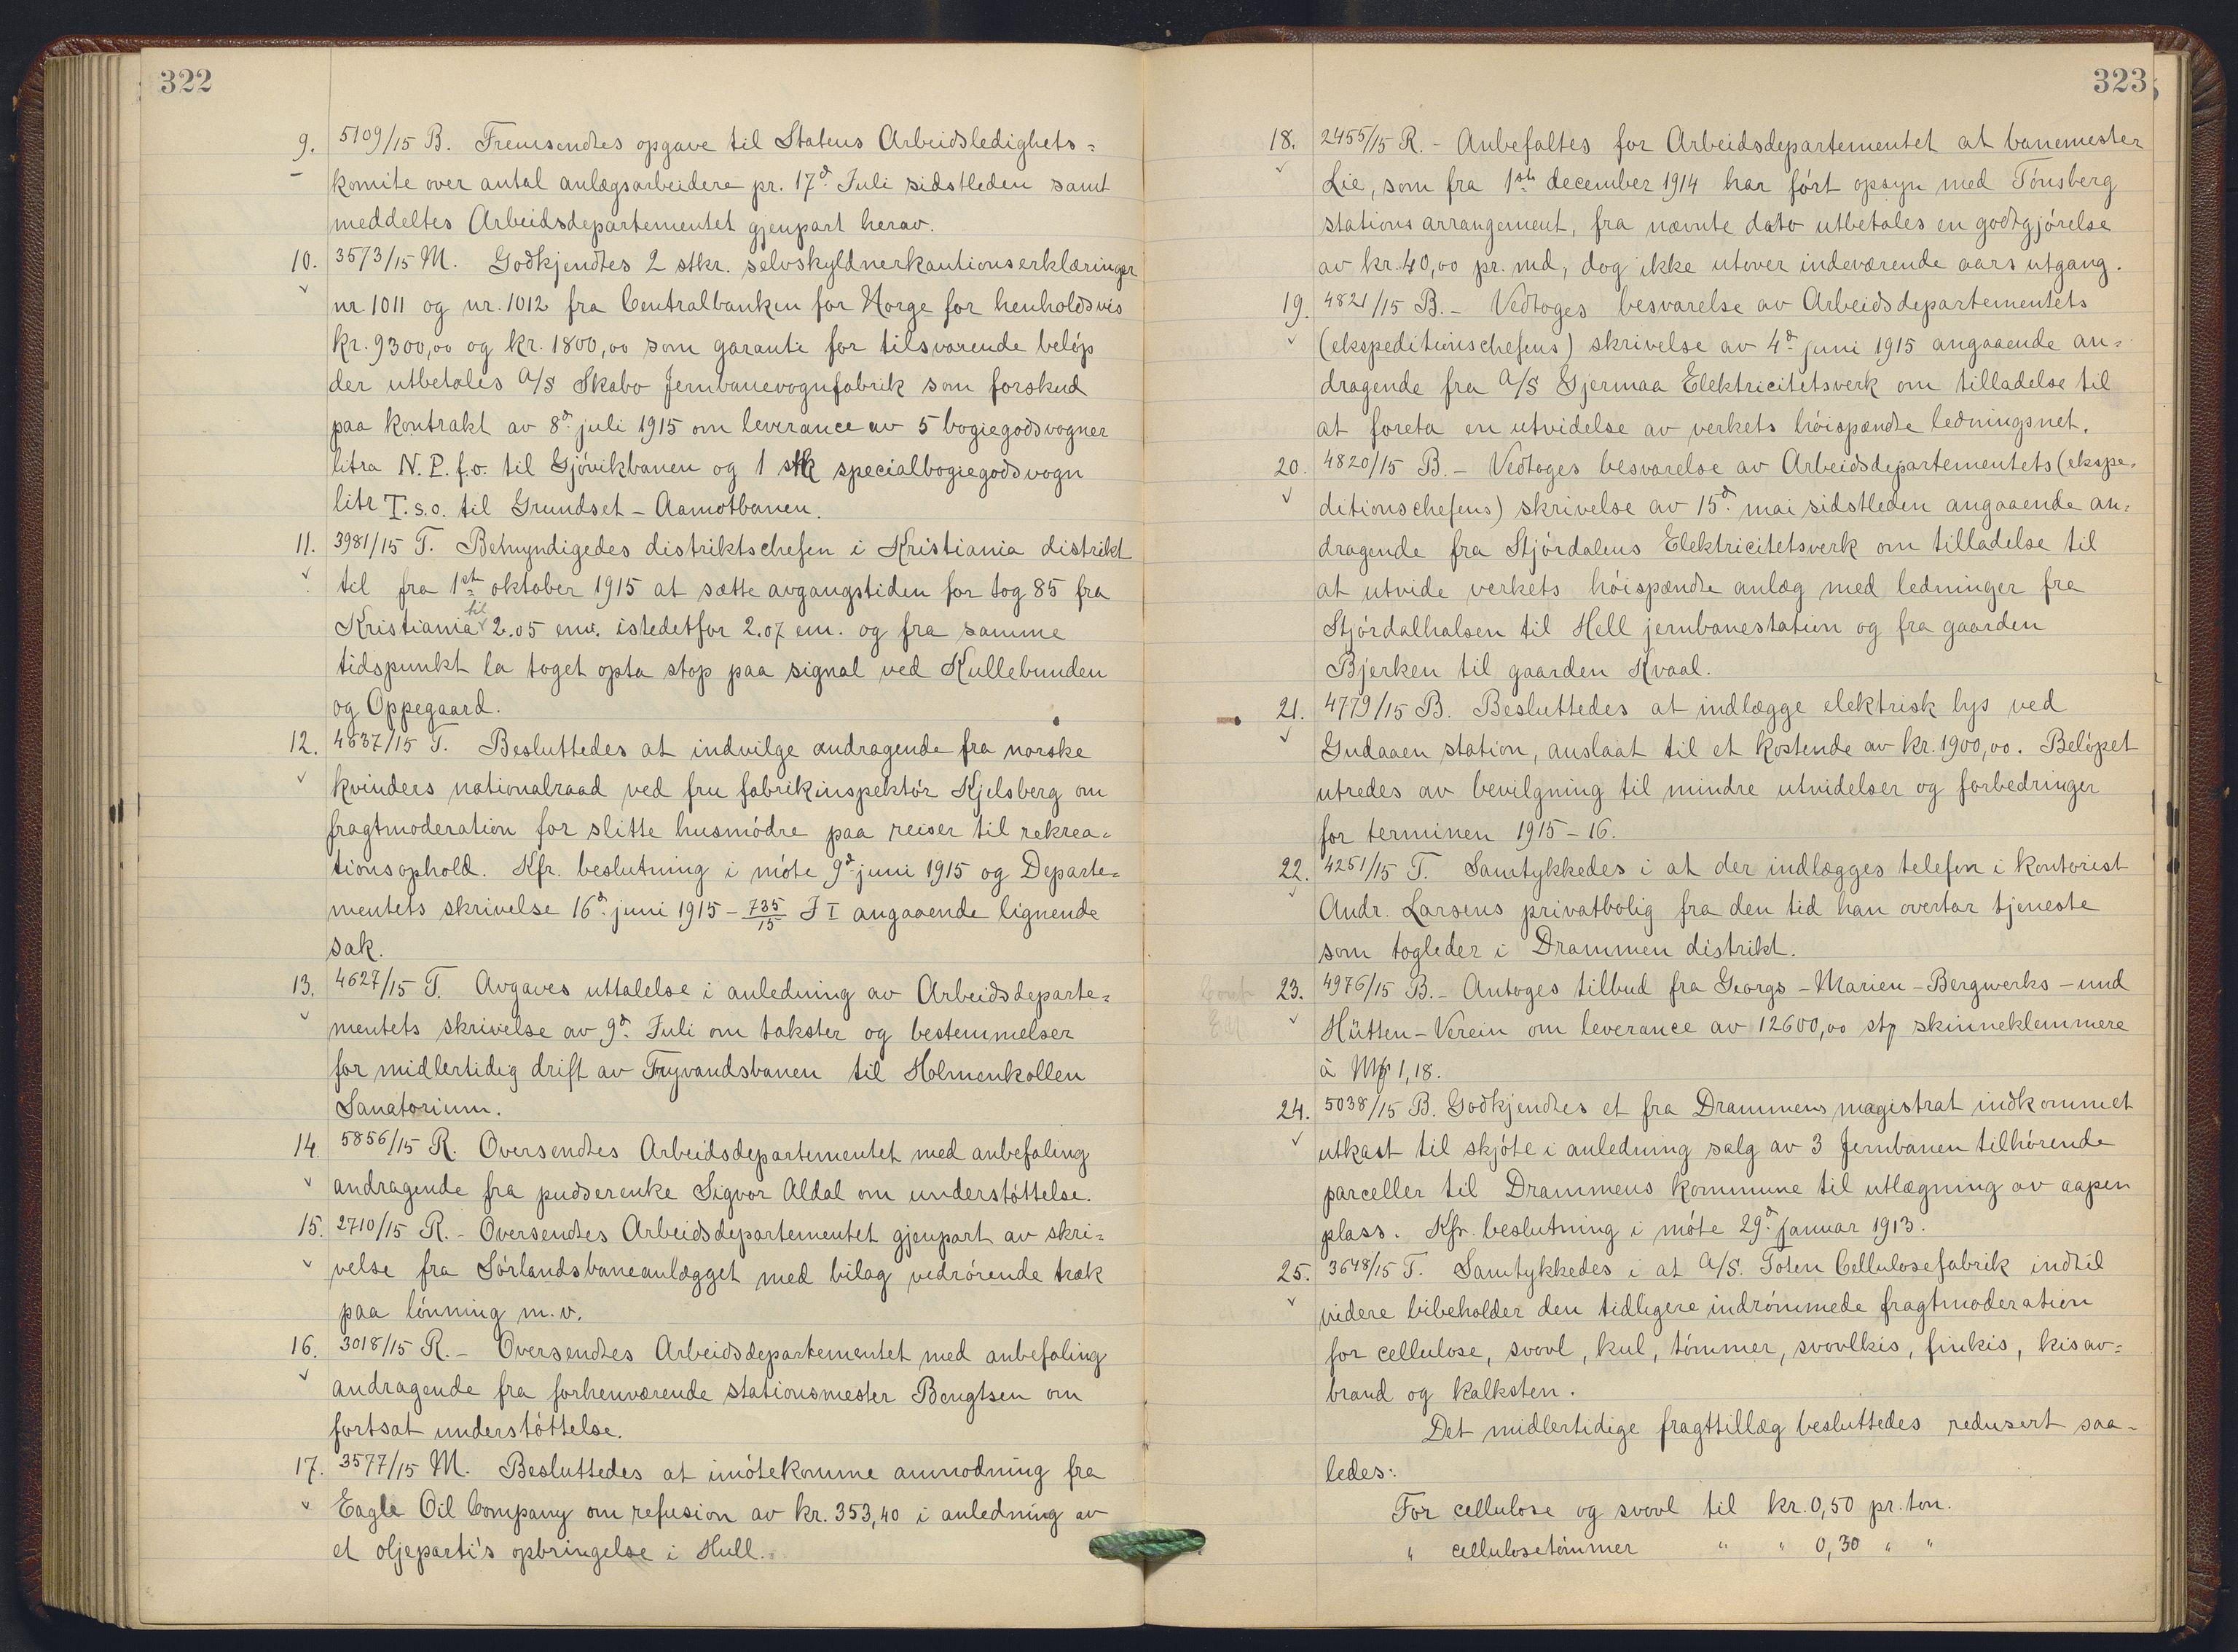 322
9. 5109/15 B. Fremsendtes opgave til Statens Arbeidsledighets=
komite over antal anlægsarbeidere pr. 17d. Juli sidstleden samt
meddeltes Arbeidsdepartementet gjenpart herav.
10. 3573/15 M. Godkjendtes 2 stkr. selvskyldnerkautionserklæringer
nr. 1011 og nr. 1012 fra Centralbanken for Norge for henholdsvis
kr. 9300,00 og kr. 1800,00 som garanti for tilsvarende beløp
der utbetales A/S Skabo Jernbanevognfabrik som forskud
paa kontrakt av 8d. juli 1915 om leverance av 5 bogiegodsvogner
litra N.P.f.o. til Gjøvikbanen og 1 stk specialbogiegodsvogn
litr T.s.o. til Grundset - Aamotbanen.
11. 3981/15 T. Bemyndigedes distriktschefen i Kristiania distrikt
til fra 1ste oktober 1915 at sætte avgangstiden for tog 85 fra
Kristiania til 2.05 em. istedetfor 2.07 em. og fra samme
tidspunkt la toget opta stop paa signal ved Kullebunden
og Oppegaard.
12. 4637/15 T. Besluttedes at indvilge andragende fra norske
kvinders nationalraad ved fru fabrikinspektør Kjelsberg om
fragtmoderation for slitte husmødre paa reiser til rekrea=
tionsophold. Kfr. beslutning i møte 9d. juni 1915 og Departe=
mentets skrivelse 16d. juni 1915 - 735/15 J I angaaende lignende
sak.
13. 4627/15 T. Avgaves uttalelse i anledning av Arbeidsdeparte=
mentets skrivelse av 9d. Juli om takster og bestemmelser
for midlertidig drift av Tryvandsbanen til Holmenkollen
Sanatorium.
14. 5856/15 R. Oversendtes Arbeidsdepartementet med anbefaling
andragende fra pudserenke Sigvor Aldal om understøttelse.
15. 2710/15 R. - Oversendtes Arbeidsdepartementet gjenpart av skri=
velse fra Sørlandsbaneanlægget med bilag vedrørende træk
paa lønning m.v.
16. 3018/15 R. - Oversendtes Arbeidsdepartementet med anbefaling
andragende fra forhenværende stationsmester Bengtsen om
fortsat understøttelse.
17. 3577/15 M. Besluttedes at imøtekomme anmodning fra
Eagle Oil Company om refusion av kr. 353,40 i anledning av
et oljeparti's opbringelse i Hull.
323
18. 2455/15 R. - Anbefaltes for Arbeidsdepartementet at banemester
Lie, som fra 1ste december 1914 har ført opsyn med Tønsberg
stationsarrangement, fra nævnte dato utbetales en godtgjørelse
av kr. 40,00 pr. md, dog ikke utover indeværende aars utgang.
19. 4821/15 B. - Vedtoges besvarelse av Arbeidsdepartementets
(ekspeditionschefens) skrivelse av 4d. juni 1915 angaaende an=
dragende fra A/S Gjermaa Elektricitetsverk om tilladelse til
at foreta en utvidelse av verkets høispændte ledningsnet.
20. 4820/15 B. - Vedtoges besvarelse av Arbeidsdepartementets (ekspe=
ditionschefens) skrivelse av 15d. mai sidstleden angaaende an=
dragende fra Stjørdalens Elektricitetsverk om tilladelse til
at utvide verkets høispændte anlæg med ledninger fra
Stjørdalhalsen til Hell jernbanestation og fra gaarden
Bjerken til gaarden Kvaal.
21. 4779/15 B. Besluttedes at indlægge elektrisk lys ved
Gudaaen station, anslaat til et kostende av kr. 1900,00. Beløpet
utredes av bevilgning til mindre utvidelser og forbedringer
for terminen 1915 - 16.
22. 4251/15 T. Samtykkedes i at der indlægges telefon i kontorist
Andr. Larsens privatbolig fra den tid han overtar tjeneste
som togleder i Drammen distrikt.
23. 4976/15 B. - Antoges tilbud fra Georgs - Marien - Bergwerks - und
Hütten - Verein om leverance av 12600,00 stk skinneklemmere
à Mk 1,18.
24. 5038/15 B. Godkjendtes et fra Drammens magistrat indkommet
utkast til skjøte i anledning salg av 3 Jernbanen tilhørende
parceller til Drammens kommune til utlægning av aapen
plass. Kfr. beslutning i møte 29d. januar 1913.
25. 3648/15 T. Samtykkedes i at A/S. Toten Cellulosefabrik indtil
videre bibeholder den tidligere indrømmede fragtmoderation
for cellulose, svovl, kul, tømmer, svovlkis, finkis, kisav=
brand og kalksten.
Det midlertidige fragttillæg besluttedes redusert saa=
ledes:
For cellulose og svovl til kr. 0,50 pr. ton.
" cellulosetømmer " " 0,30 " "